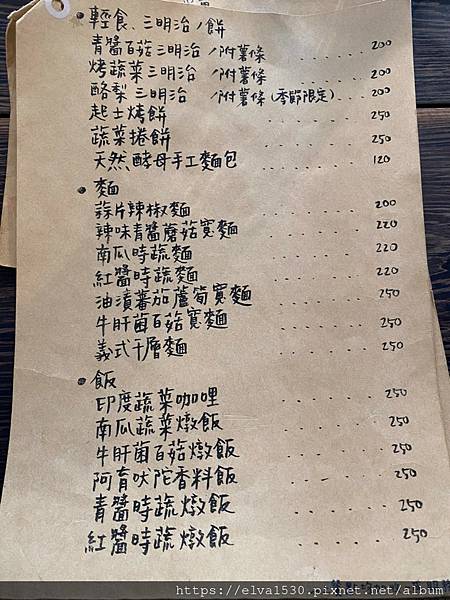 • 輕食、三明治/餅
青醬百菇三明治 /附薯條 ..... 200
烤蔬菜三明治 /附薯條 ..... 200
酪梨三明治 /附薯條(季節限定) ... 200
起士烤餅 ..... 250
蔬菜捲餅 ..... 250
天然酵母手工麵包 ..... 120
• 麵
蒜片辣椒麵 ..... 200
辣味青醬蘑菇寬麵 ..... 220
南瓜時蔬麵 ..... 220
紅醬時蔬麵 ..... 220
油漬蕃茄蘆筍寬麵 ..... 250
牛肝菌百菇寬麵 ..... 250
義式千層麵 ..... 250
• 飯
印度蔬菜咖哩 ..... 250
南瓜蔬菜燉飯 ..... 250
牛肝菌百菇燉飯 ..... 250
阿育吠陀香料飯 ..... 250
青醬時蔬燉飯 ..... 250
紅醬時蔬燉飯 ..... 250
https://elva1530.pixnet.net/album